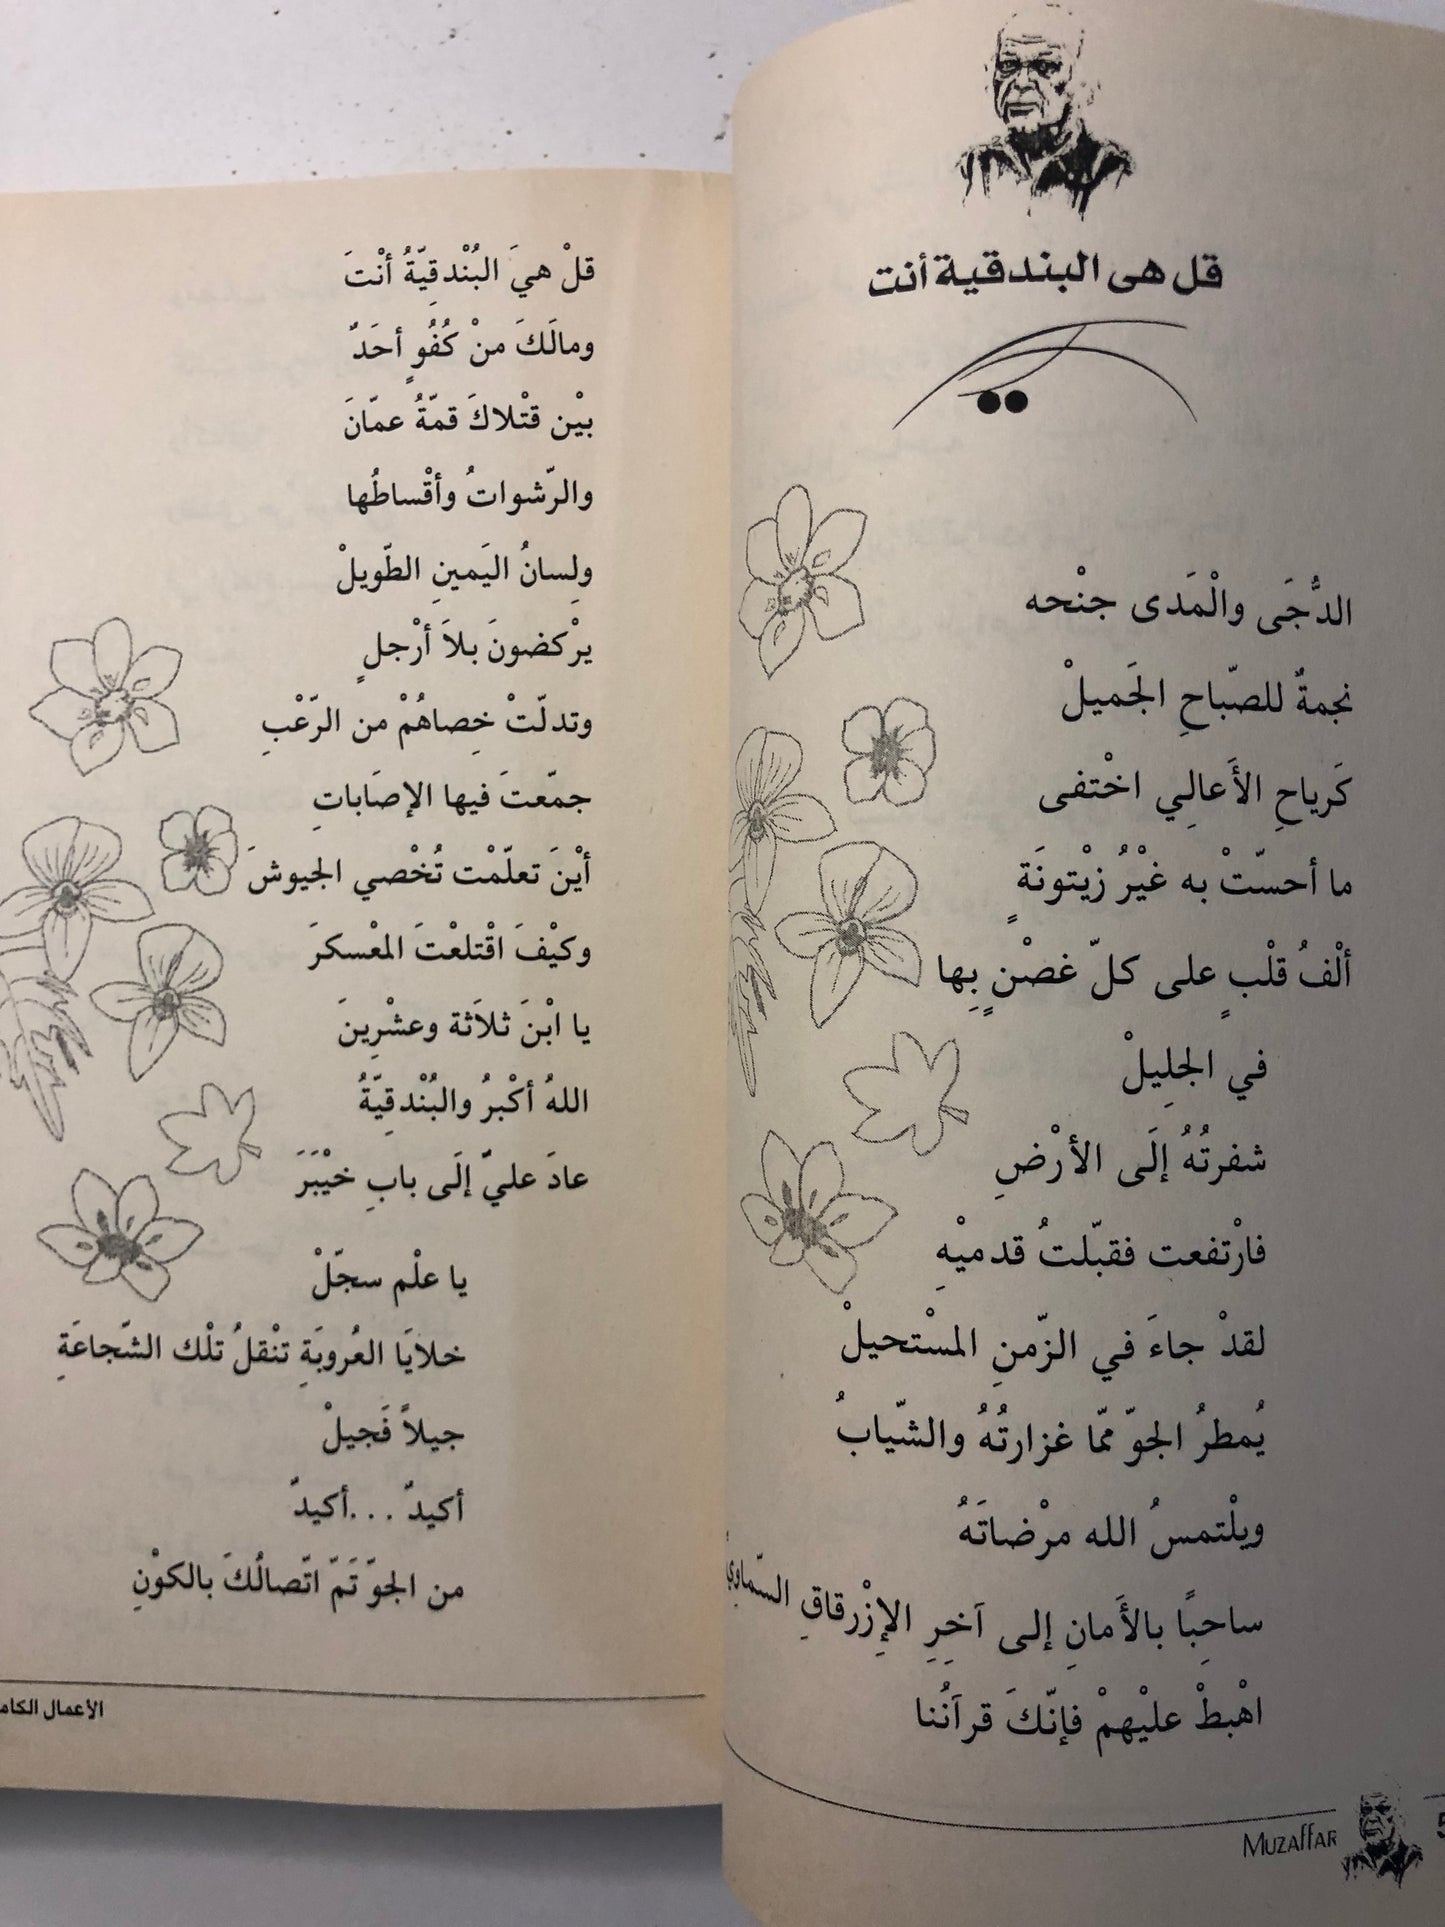 قل هى البندقية أنت
الدُّجَى والْمَدى جنْحه
نجمةٌ للصّباحِ الجَميلْ
كَرياحِ الأَعالِي اخْتفى
ما أحسّتْ به غيْرُ زيْتونَةٍ
ألْفُ قلْبٍ على كلّ غصْنٍ بِها
في الجلِيلْ
شفرتُهُ إلَى الأرْضِ
فارْتفعت فقبّلتُ قدميْهِ
لقدْ جاءَ في الزّمنِ المسْتحيلْ
يُمطرُ الجوّ ممّا غزارتُهُ والشّيابُ
ويلْتمسُ الله مرْضاتَهُ
ساحِبًا بالأَمانِ إلى آخِرِ الإزْرقاقِ السّماوِيِّ
اهْبطْ عليْهمْ فإنّكَ قرآنُنا
MUZAFFAR
5
قلْ هيَ البُنْدقِيّةُ أنْتَ
ومالَكَ منْ كُفُوٍ أحَدٌ
بيْن قتْلاكَ قمّةُ عمّانَ
والرّشواتُ وأقْساطُها
ولِسانُ اليَمينِ الطّويلْ
يرْكضونَ بلاَ أرْجلٍ
وتدلّتْ خِصاهُمْ من الرّعْبِ
جمّعتَ فيها الإصَاباتِ
أيْنَ تعلّمْت تُخْصي الجيوشَ
وكيْفَ اقْتلعْتَ المعْسكرَ
يا ابْنَ ثلاَثة وعشْرِينَ
اللهُ أكْبرُ والبُنْدقِيّةُ
عادَ عليٌّ إلَى بابِ خيْبَرَ
يا علْم سجّلْ
خلايَا العُروبَةِ تنْقلُ تلْك الشّجاعَةِ
جيلاً فَجيلْ
أكيدٌ ...أكيدٌ
من الجوّ تَمّ اتّصالُكَ بالكوْنِ
الأعمال الكام